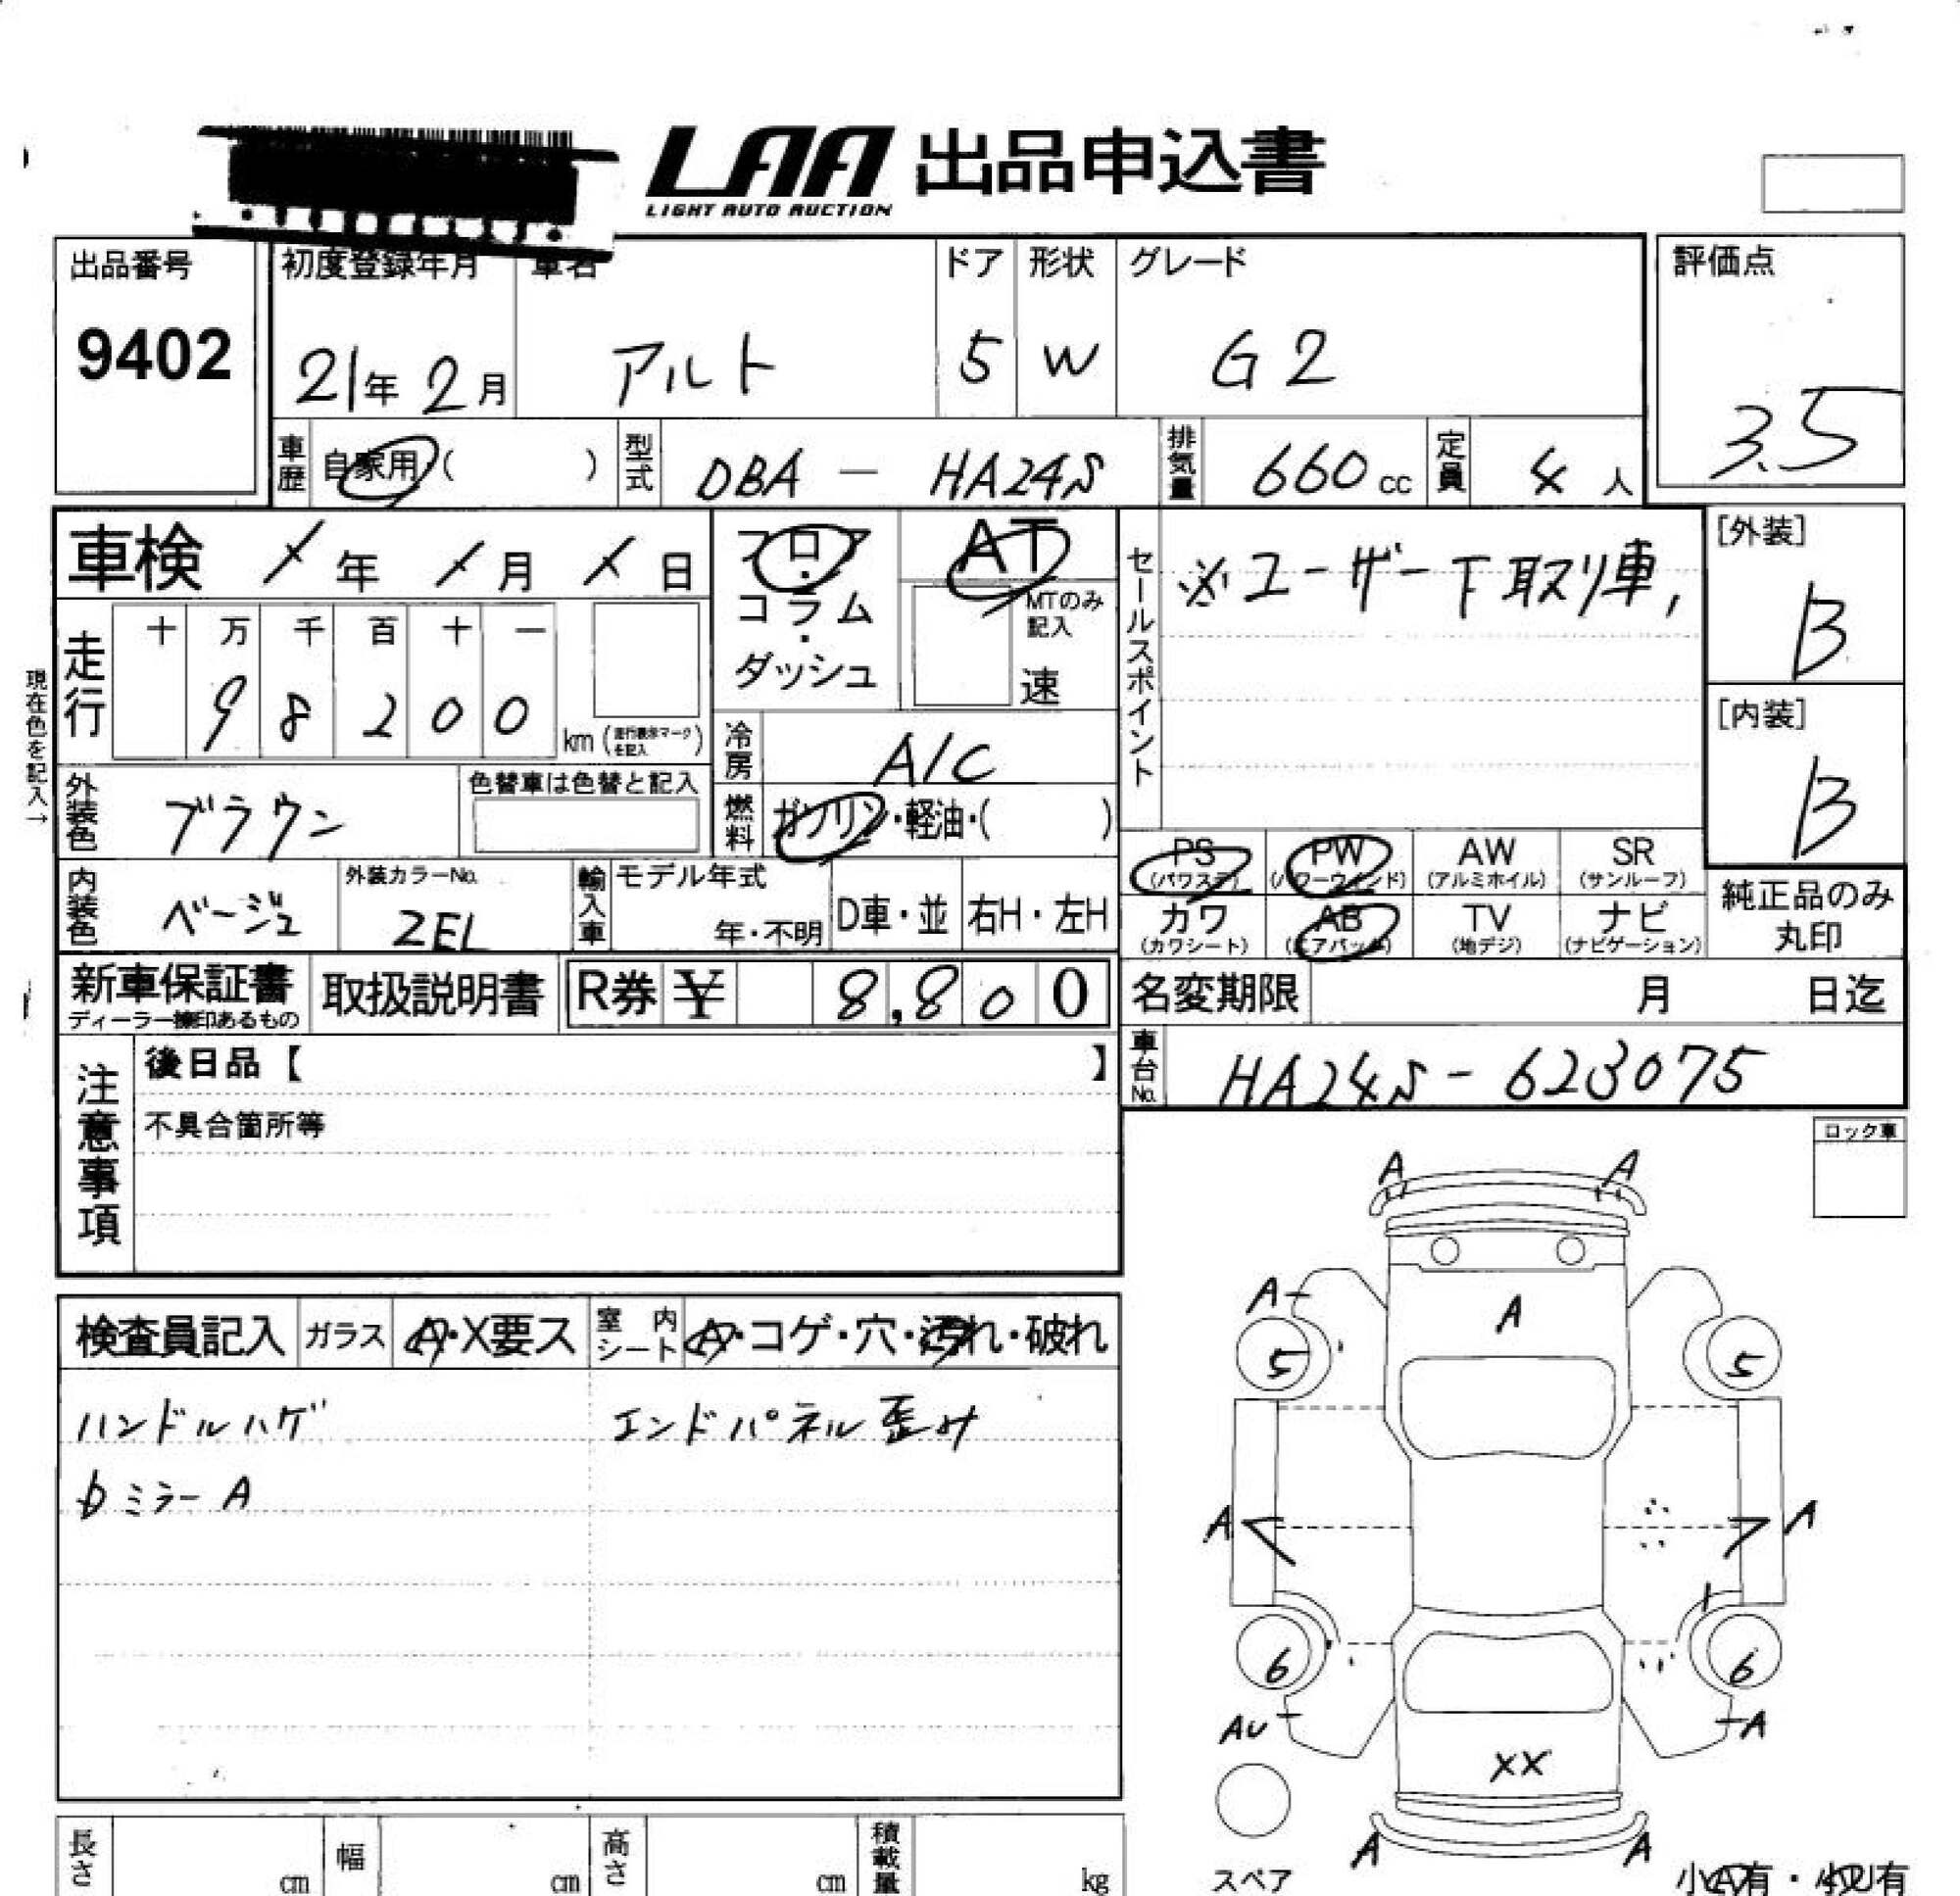 LAA 出品申込書
LIGHT AUTO AUCTION
出品番号 初度登録年月 車名 ドア 形状 グレード 評価点
9402 21年 2月 アルト 5 W G2 3.5
車歴 自家用 ( ) 型式 DBA - HA24S 排気量 660 cc 定員 4 人
車検 / 年 / 月 / 日 フロア・コラム・ダッシュ AT MTのみ記入 速
セールスポイント ※ユーザー下取り車,
[外装] B
走行 十 万 千 百 十 一
9 8 2 0 0 km (走行表示マークを記入)
[内装] B
現在色を記入→
冷房 A/C
外装色 ブラウン 色替車は色替と記入 燃料 ガソリン・軽油・( )
PS (パワステ) PW (パワーウインド) AW (アルミホイル) SR (サンルーフ)
カワ (カワシート) AB (エアバッグ) TV (地デジ) ナビ (ナビゲーション)
純正品のみ丸印
内装色 ベージュ 外装カラーNo. ZEL 輸入車 モデル年式 年・不明 D車・並 右H・左H
新車保証書 ディーラー捺印あるもの 取扱説明書 R券 ¥ 8,800 名変期限 月 日迄
車台No. HA24S - 623075
注意事項 後日品【 】
不具合箇所等
ロック車
検査員記入 ガラス A・X要ス 室内シート A・コゲ・穴・汚れ・破れ
ハンドルハゲ エンドパネル歪み
ミラー A
A A
A A
5 5
A A
6 6
AU A
XX
A A
スペア
長さ cm 幅 cm 高さ cm 積載量 kg